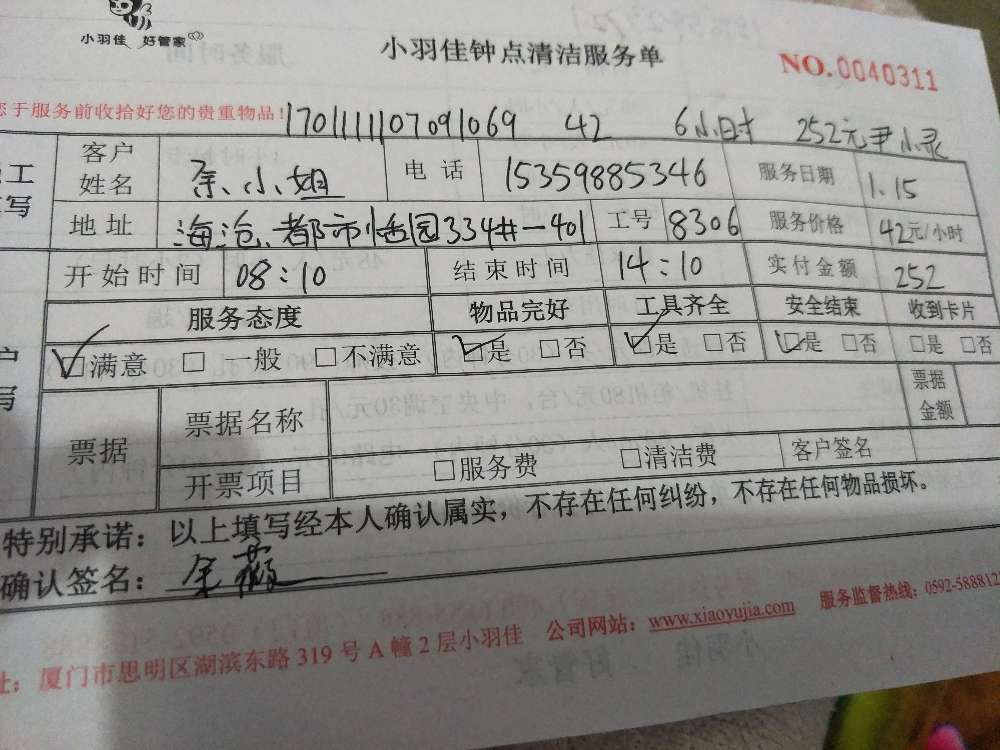 小羽佳 好管家
小羽佳钟点清洁服务单
NO.0040311
您于服务前收拾好您的贵重物品!
1701111107091069 42 6小时 252元 尹小录
工 客户姓名 余小姐 电话 15359885346 服务日期 1.15
写 地址 海沧都市 园334#-401 工号 8306 服务价格 42元/小时
开始时间 08:10 结束时间 14:10 实付金额 252
服务态度 物品完好 工具齐全 安全结束 收到卡片
户 ☑满意 □一般 □不满意 ☑是 □否 ☑是 □否 ☑是 □否 □是 □否
写 票据 票据名称 票据金额
开票项目 □服务费 □清洁费 客户签名
特别承诺：以上填写经本人确认属实，不存在任何纠纷，不存在任何物品损坏。
确认签名： 余薇
址：厦门市思明区湖滨东路319号A幢2层小羽佳 公司网站：www.xiaoyujia.com 服务监督热线：0592-588812